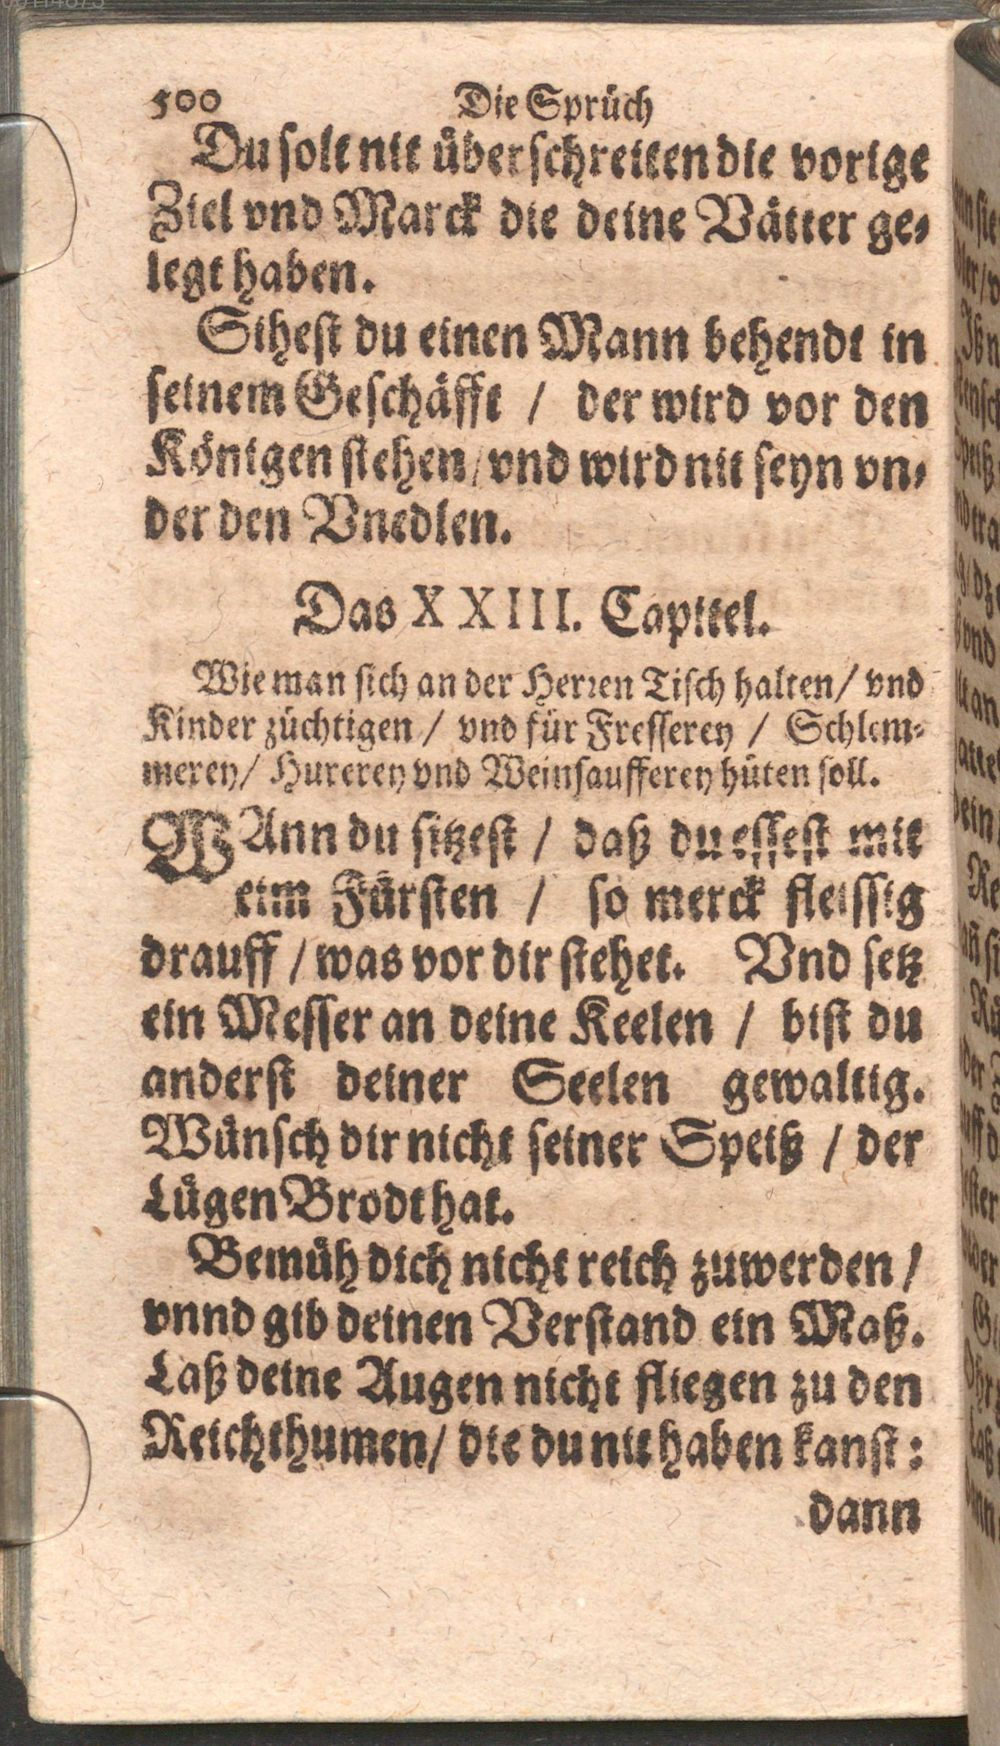 500 Die Sprüch
Du solt nit überschreitten die vorige
Ziel vnd Marck die deine Vätter ge-
legt haben.
Sihest du einen Mann behendt in
seinem Geschäfft / der wird vor den
Königen stehen / vnd wird nit seyn vn-
der den Vnedlen.
Das XXIII. Capittel.
Wie man sich an der Herren Tisch halten / vnd
Kinder züchtigen / vnd für Fresserey / Schlem-
merey / Hurerey vnd Weinsaufferey hüten soll.
WAnn du sitzest / daß du essest mit
eim Fürsten / so merck fleissig
drauff / was vor dir stehet. Vnd setz
ein Messer an deine Keelen / bist du
anderst deiner Seelen gewaltig.
Wünsch dir nicht seiner Speiß / der
Lügen Brodt hat.
Bemüh dich nicht reich zuwerden /
vnnd gib deinen Verstand ein Maß.
Laß deine Augen nicht fliegen zu den
Reichthumen / die du nit haben kanst :
dann